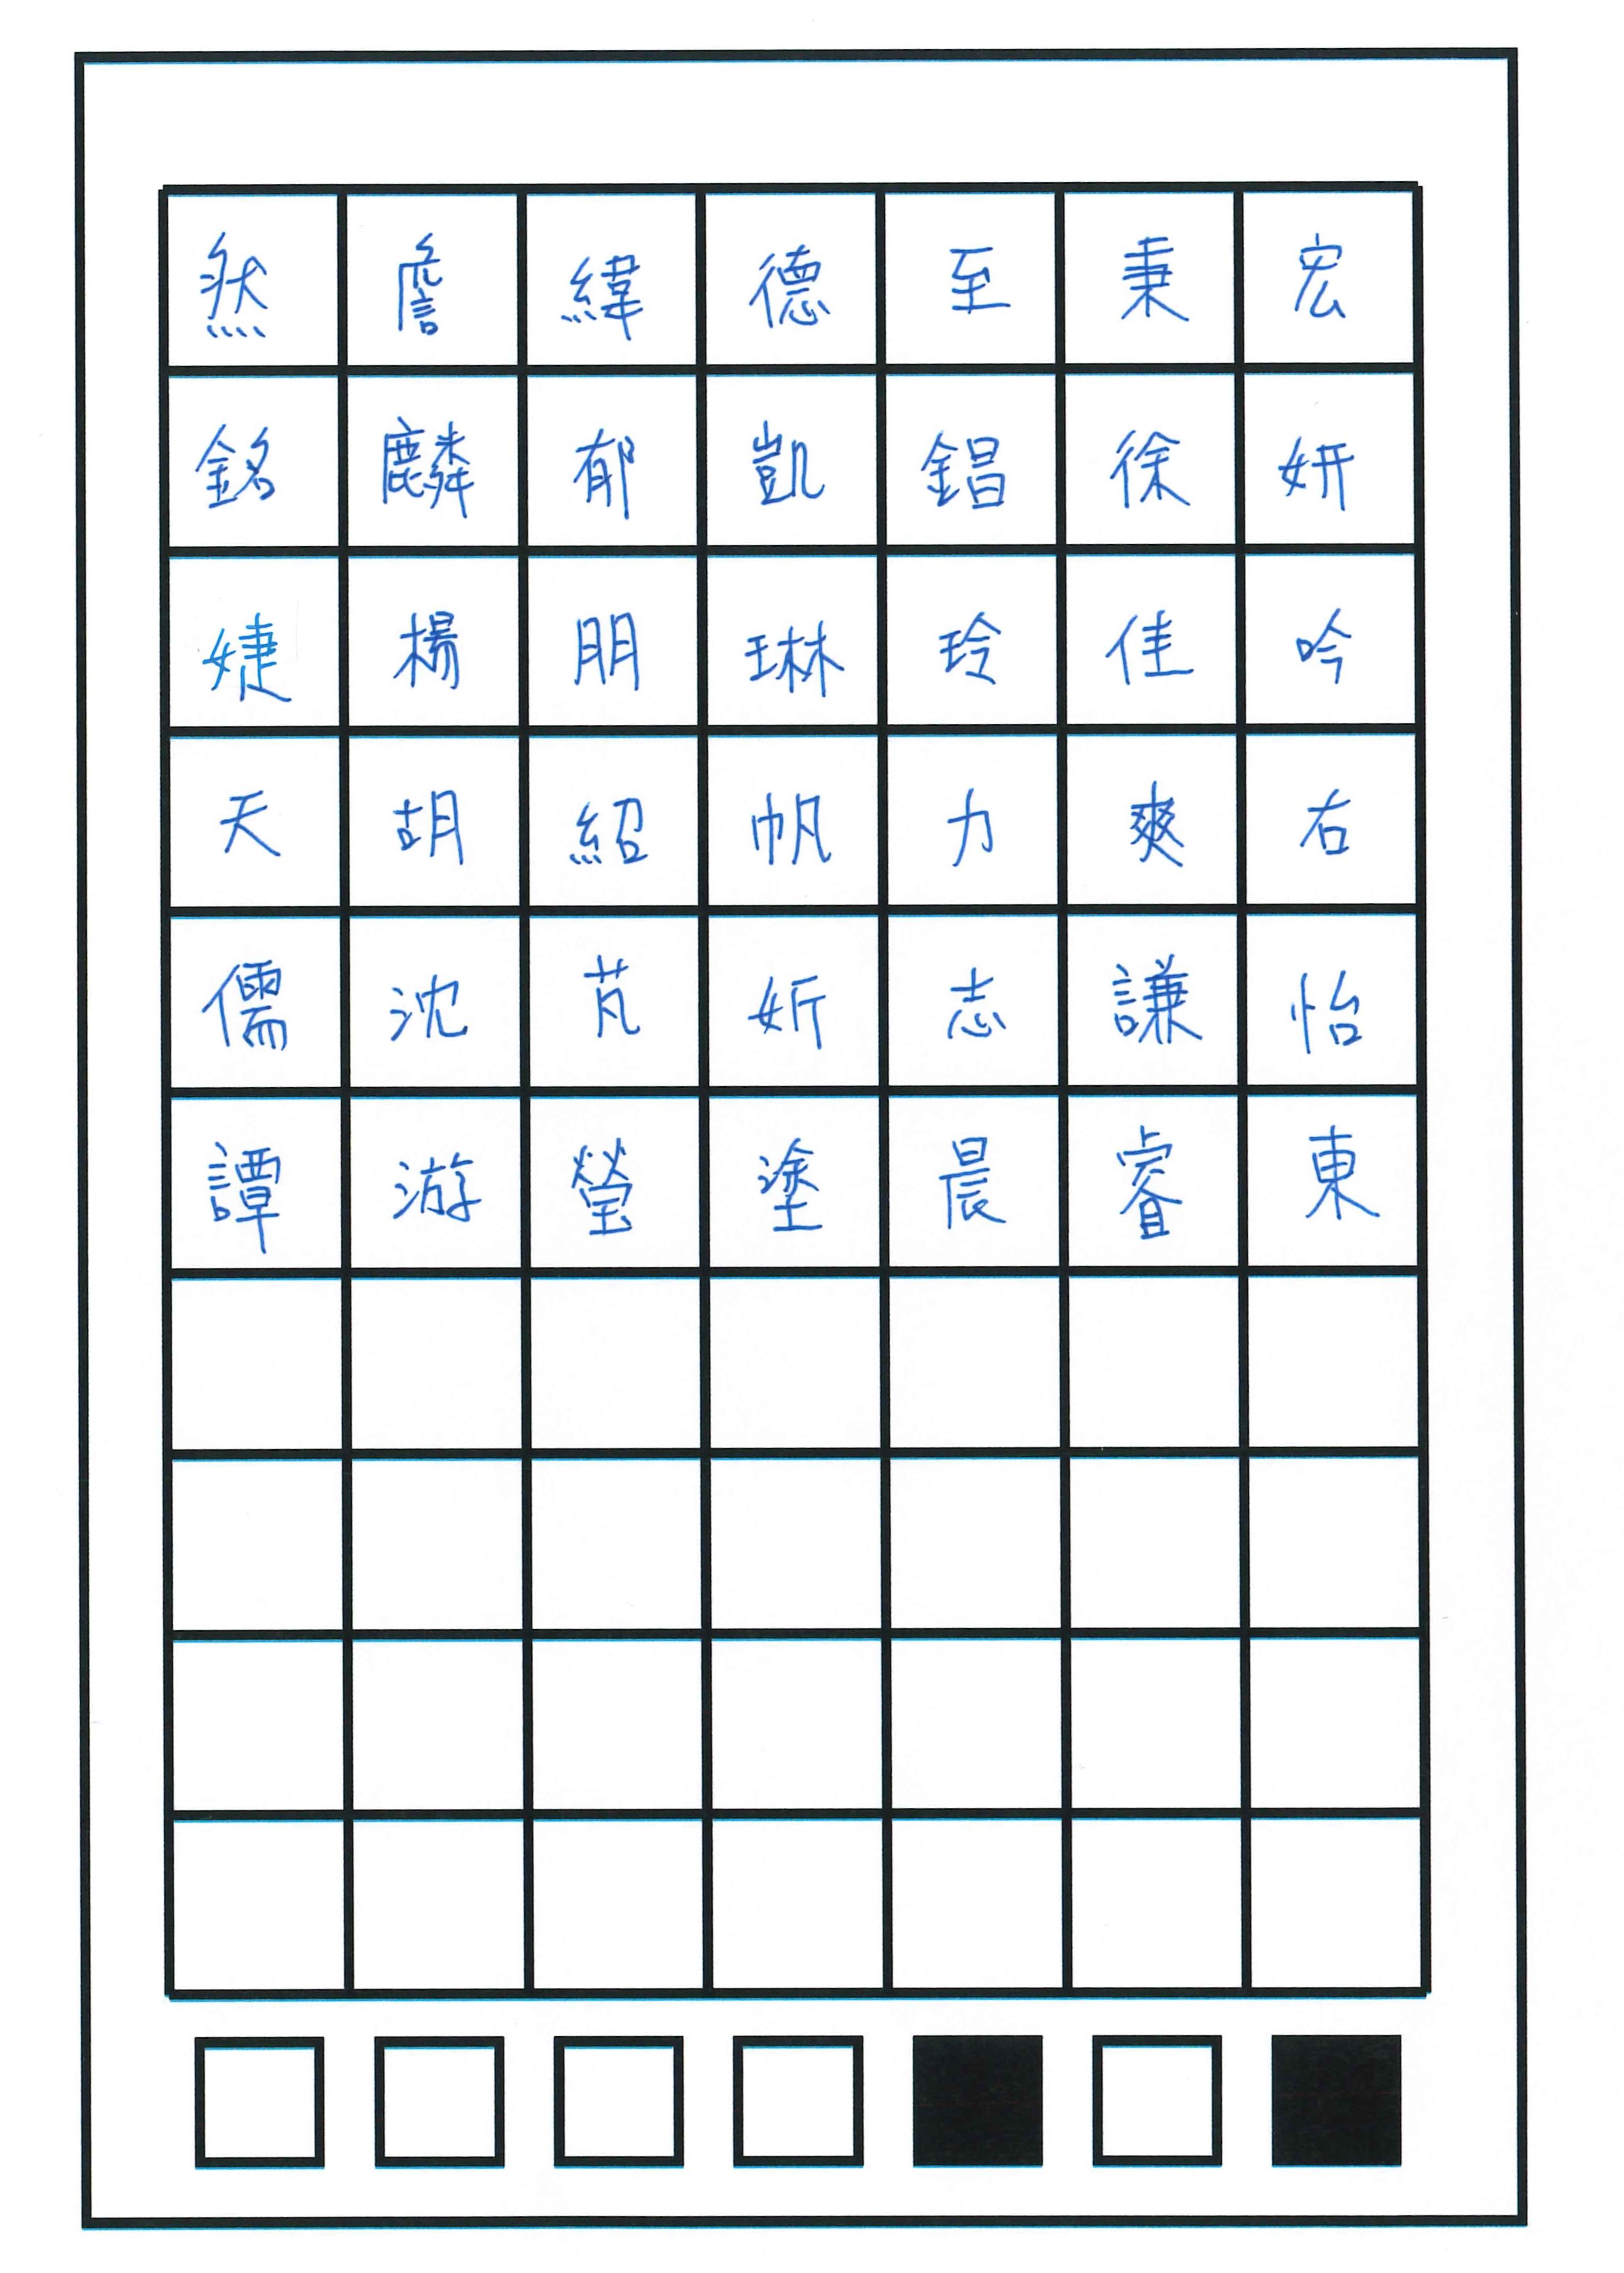 然詹緯德至秉宏
銘麟郁凱錩徐妍
婕楊朋琳玲佳吟
天胡紹帆力爽右
儒沈芃妡志謙怡
譚游瑩塗晨睿東